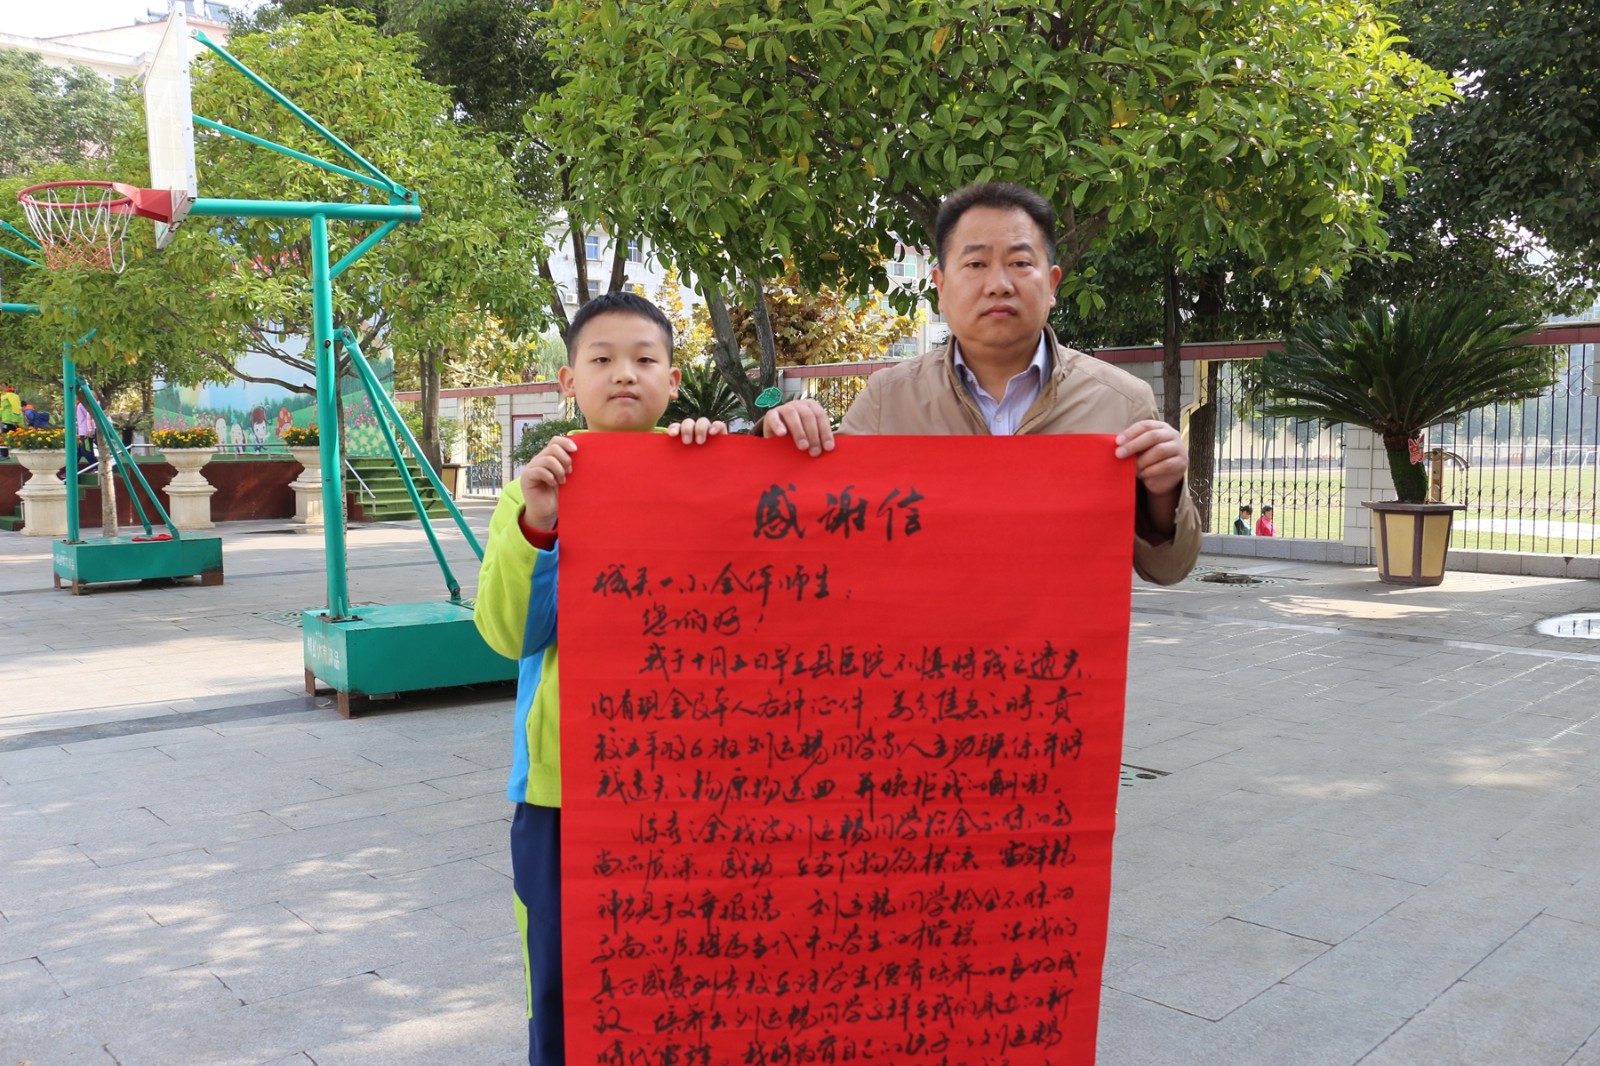 感谢信
城关一小全体师生：
您们好！
我于十月五日早在县医院不慎将钱包遗失，
内有现金及本人各种证件，万分焦急之时，贵
校五年级6班刘运畅同学家人主动联系，并将
我遗失之物原物送回，并婉拒我的酬谢。
惊喜之余我被刘运畅同学拾金不昧的高
尚品质深深感动，在当下物欲横流，雷锋精
神只见于文章报端，刘运畅同学拾金不昧的
高尚品质堪为当代中小学生的楷模，让我们
真正感受到贵校在对学生德育培养的良好成
效，培养出刘运畅同学这样在我们身边的新
时代雷锋。我将教育自己的孩子以刘运畅